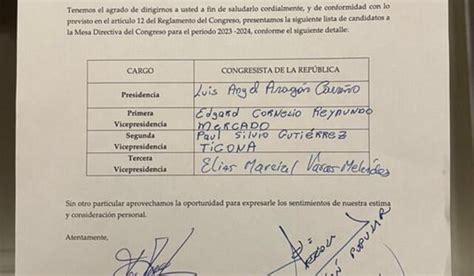 Tenemos el agrado de dirigirnos a usted a fin de saludarlo cordialmente, y de conformidad con lo
previsto en el artículo 12 del Reglamento del Congreso, presentamos la siguiente lista de candidatos a
la Mesa Directiva del Congreso para el período 2023 -2024, conforme el siguiente detalle:
CARGO CONGRESISTA DE LA REPÚBLICA
Presidencia Luis Angel Aragón Carreño
Primera Vicepresidencia Edgard CORNELIO REYMUNDO
MERCADO
Segunda Vicepresidencia Paul SILVIO GUTIÉRREZ
TICONA
Tercera Vicepresidencia Elias Marcial Varas Meléndez
Sin otro particular aprovechamos la oportunidad para expresarle los sentimientos de nuestra estima
y consideración personal.
Atentamente,
POPULAR